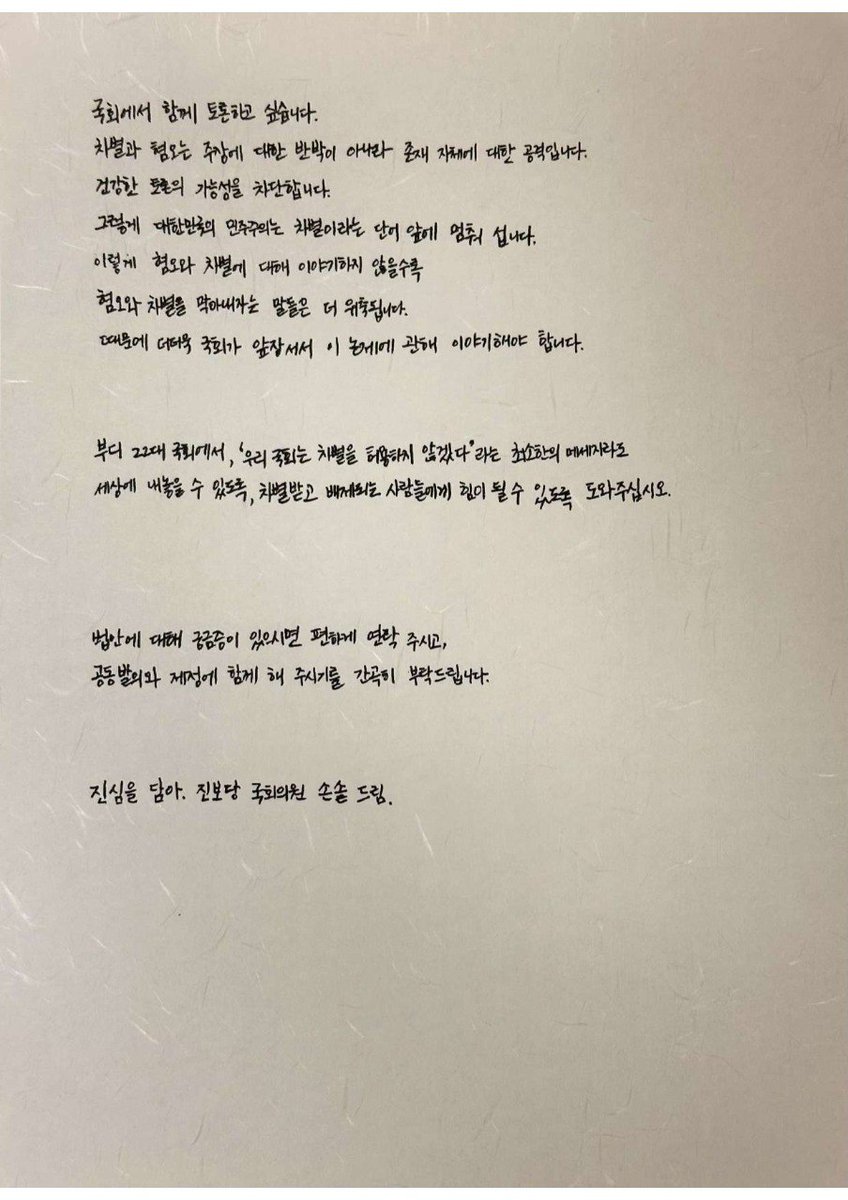 국회에서 함께 토론하고 싶습니다.
차별과 혐오는 주장에 대한 반박이 아니라 존재 자체에 대한 공격입니다.
건강한 토론의 가능성을 차단합니다.
그렇게 대한민국의 민주주의는 차별이라는 단어 앞에 멈춰 섭니다.
이렇게 혐오와 차별에 대해 이야기하지 않을수록
혐오와 차별을 막아내자는 말들은 더 위축됩니다.
때문에 더더욱 국회가 앞장서서 이 논제에 관해 이야기해야 합니다.
부디 22대 국회에서, '우리 국회는 차별을 허용하지 않겠다'라는 최소한의 메세지라도
세상에 내놓을 수 있도록, 차별받고 배제되는 사람들에게 힘이 될 수 있도록 도와주십시오.
법안에 대해 궁금증이 있으시면 편하게 연락 주시고,
공동발의와 제정에 함께 해 주시기를 간곡히 부탁드립니다.
진심을 담아. 진보당 국회의원 손솔 드림.